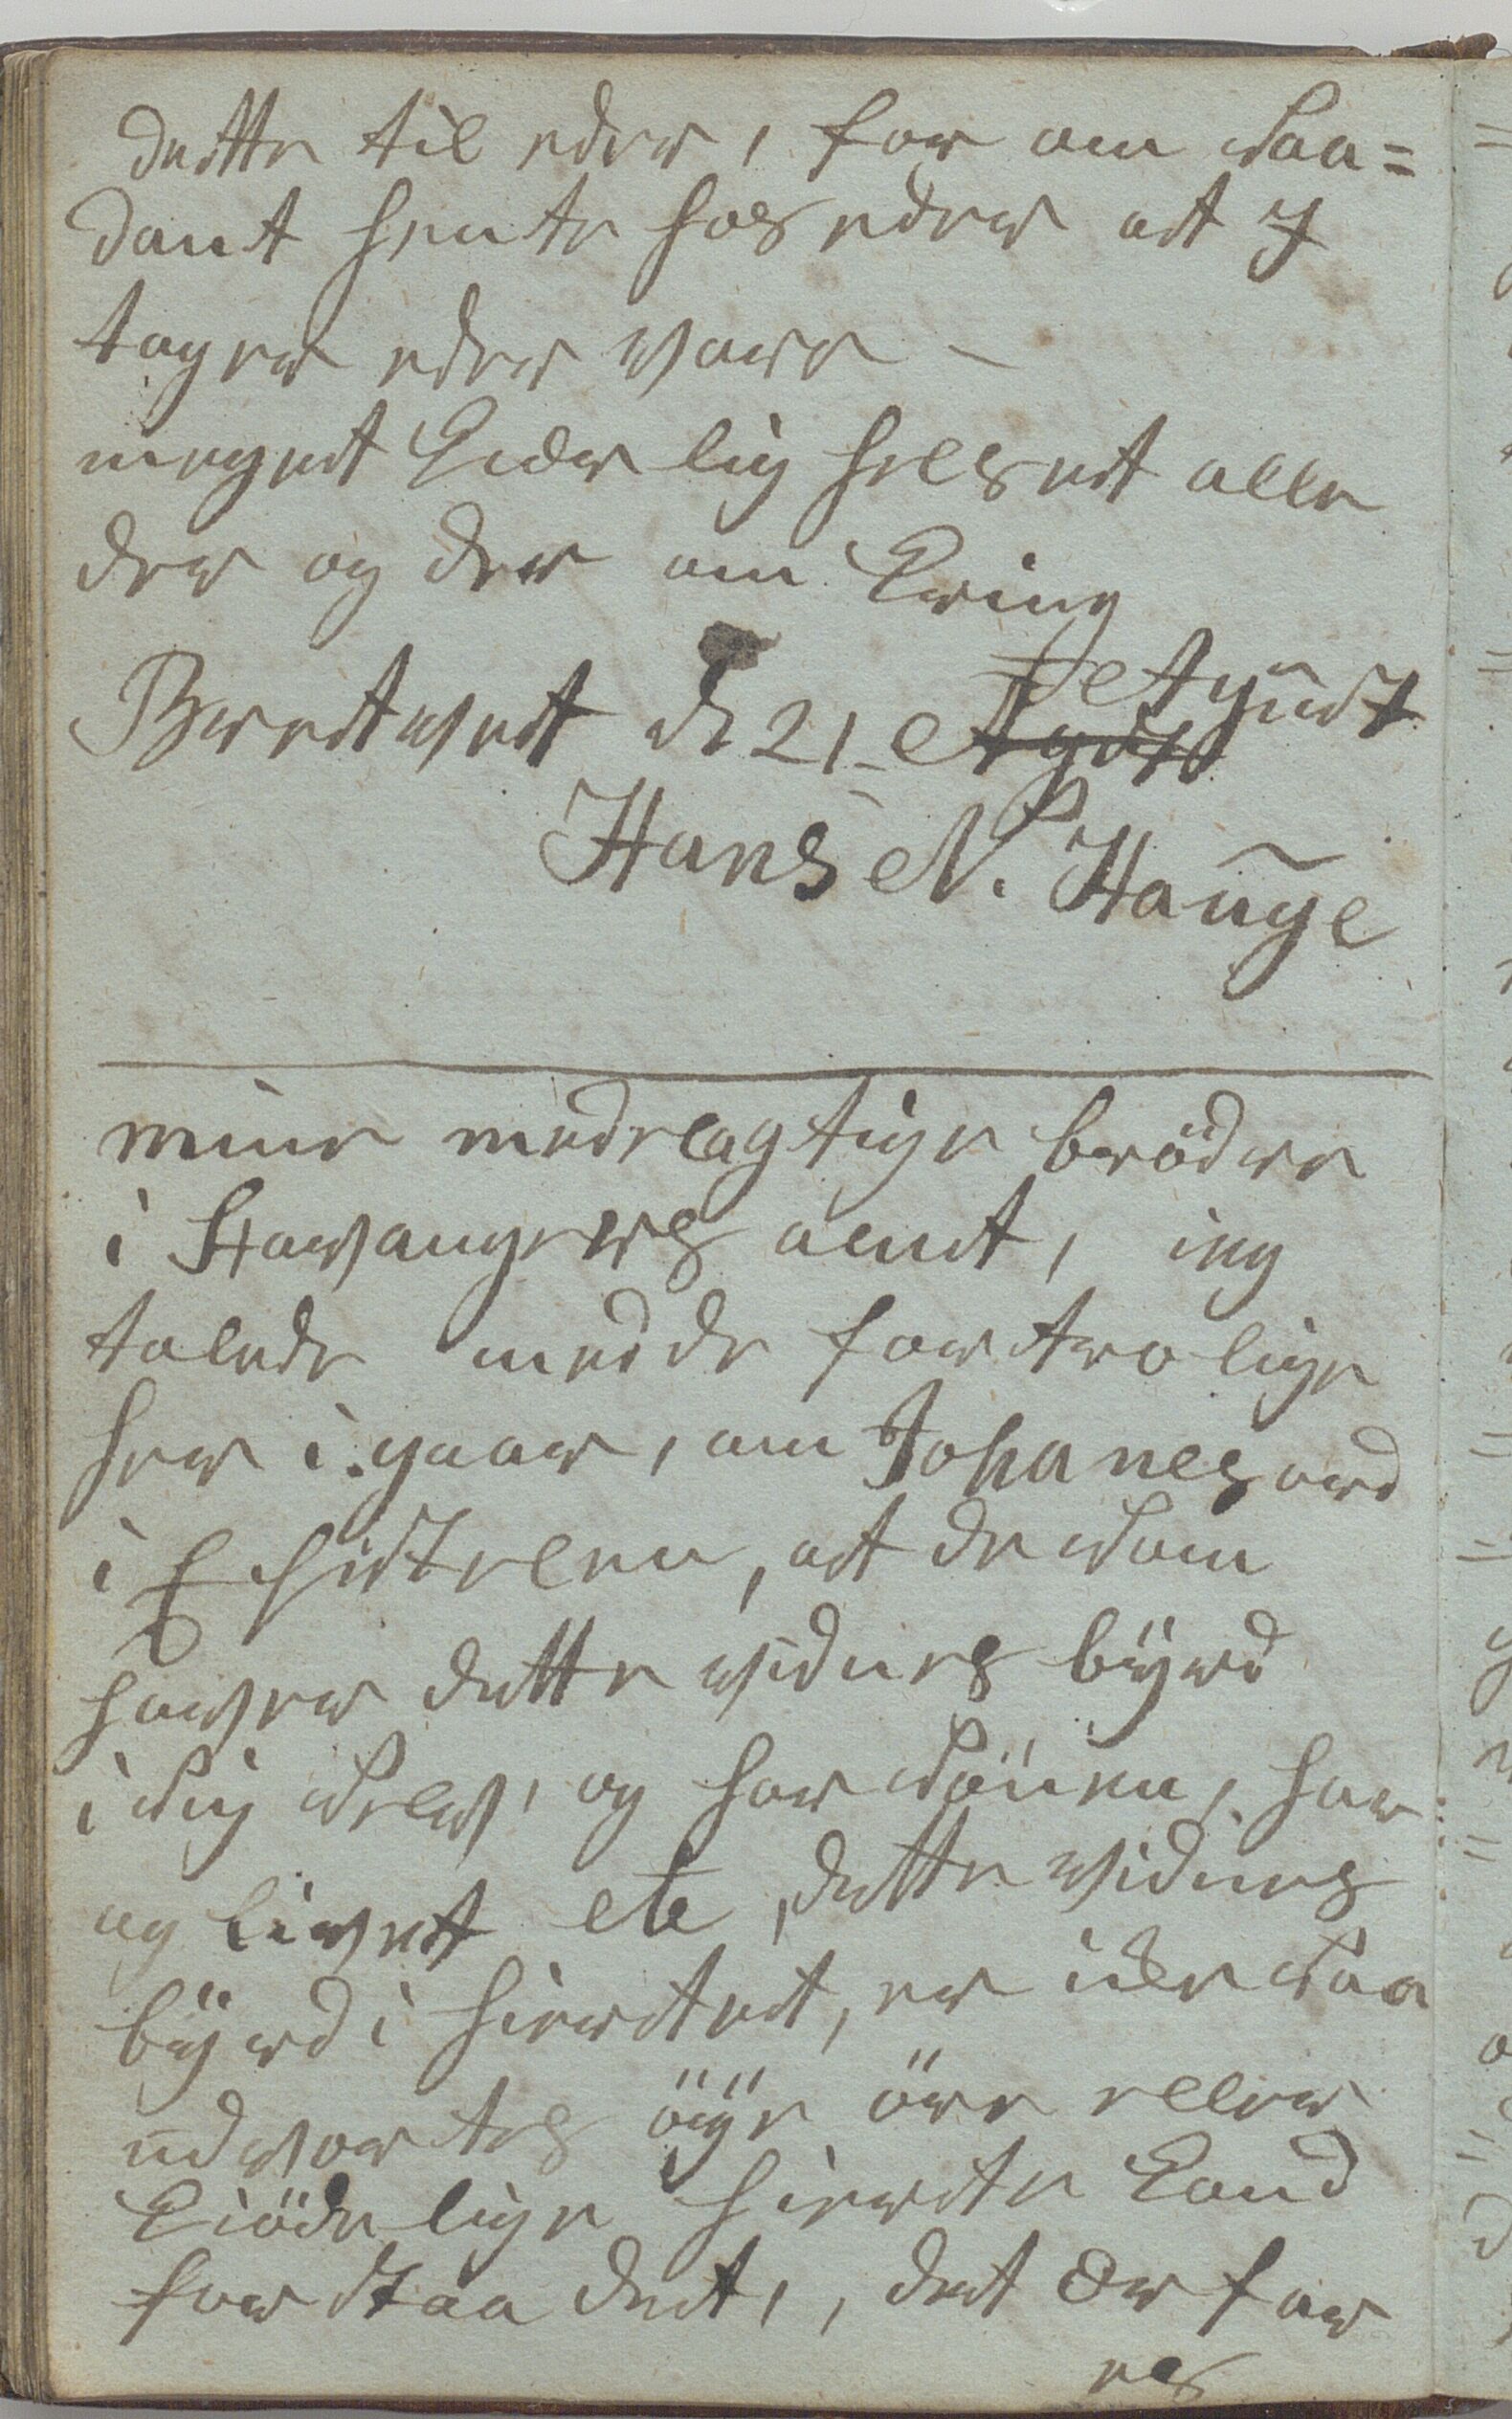 dette til eder, for om Saa=
dant hente hos eder at I
tager eder vare –
meget kierlig helset alle
der og der om kring
Bredtvedt d 21 Agust
Hans N. Hauge
mine medelagtige brödre
i Stavangers amt, ieg
talede medde fortrolige
her i gaar, om Johanes ord
i Epistelen, at de som
haver dette vidnes byrd
i Sig Selv, og har Sönen, har
og livet etc, dette vidnes
byrd i hiertet, er icke Saa
udvortes öÿe öre eller
kiödelige hierte kand
forstaa det, det Er far
es